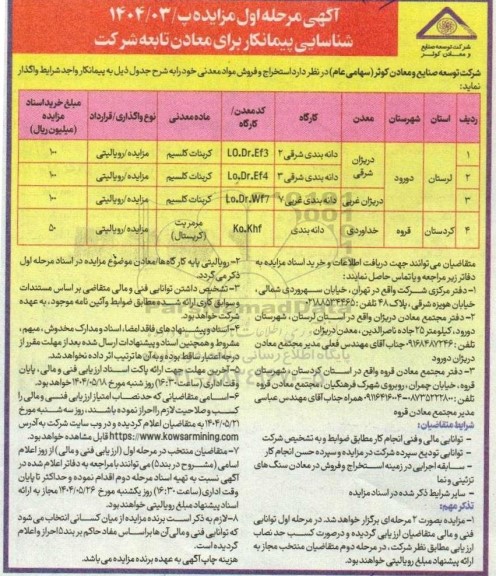 آگهی مرحله اول مزایده ب/۱۴۰۴/۰۳
شناسایی پیمانکار برای معادن تابعه شرکت
شرکت توسعه صنایع
و معادن کوثر
شرکت توسعه صنایع و معادن کوثر (سهامی عام) در نظر دارد استخراج و فروش مواد معدنی خود را به شرح جدول ذیل به پیمانکار واجد شرایط واگذار
نماید:
ردیف استان شهرستان معدن کارگاه کد معدن/کارگاه ماده معدنی نوع واگذاری/قرارداد مبلغ خرید اسناد مزایده (میلیون ریال)
۱ لرستان دورود دریژان شرقی دانه بندی شرقی ۲ LO.Dr.Ef3 کربنات کلسیم مزایده/رویالیتی ۱۰۰
۲ دانه بندی شرقی ۳ Lo.Dr.Ef4 کربنات کلسیم مزایده/رویالیتی ۱۰۰
۳ دریژان غربی دانه بندی غربی ۷ Lo.Dr.Wf7 کربنات کلسیم مزایده/رویالیتی ۱۰۰
۴ کردستان قروه خداوردی دانه بندی Ko.Khf مرمریت (کریستال) مزایده/رویالیتی ۵۰
متقاضیان می توانند جهت دریافت اطلاعات و خرید اسناد مزایده به
دفاتر زیر مراجعه و یا تماس حاصل نمایند:
۱- دفتر مرکزی شرکت واقع در تهران، خیابان سهروردی شمالی،
خیابان هویزه شرقی، پلاک ۴۸ تلفن: ۰۲۱۸۸۵۳۴۴۶۵
۲- دفتر مجتمع معادن دریژان واقع در استان لرستان، شهرستان
دورود، کیلومتر ۲۵ جاده ناصرالدین، معدن دریژان
تلفن: ۰۹۱۶۸۴۸۷۲۴۶ جناب آقای مهندس فعلی مدیر مجتمع معادن
دریژان دورود
۳- دفتر مجتمع معادن قروه واقع در استان کردستان، شهرستان
قروه، خیابان چمران، روبروی شهرک فرهنگیان، مجتمع معادن قروه
تلفن: ۰۸۷۳۵۲۲۲۸۰۰ همراه جناب آقای مهندس عباسی
مدیر مجتمع معادن قروه
شرایط متقاضیان:
- توانایی مالی و فنی انجام کار مطابق ضوابط و به تشخیص شرکت
- توانایی تودیع سپرده شرکت در مزایده و سپرده حسن انجام کار
- سابقه اجرایی در زمینه استخراج و فروش در معادن سنگ های
تزئینی و نما
- سایر شرایط ذکر شده در اسناد مزایده
تذکر مهم:
۱- مزایده بصورت ۲ مرحله ای برگزار خواهد شد. در مرحله اول توانایی
فنی و مالی متقاضیان ارزیابی گردیده و درصورت کسب حد نصاب
ارزیابی مطابق نظر شرکت، در مرحله دوم متقاضیان منتخب مجاز به
ارائه پیشنهاد مبلغ رویالیتی خواهند بود.
۲- رویالیتی پایه کارگاه ها/معادن موضوع مزایده در اسناد مرحله اول
ذکر می گردد.
۳- تشخیص داشتن توانایی فنی و مالی متقاضی بر اساس مستندات
و سوابق کاری ارائه شده مطابق ضوابط و آئین نامه موجود، به عهده
شرکت خواهد بود.
۴- اسناد و پیشنهادهای فاقد امضا، اسناد و مدارک مخدوش، مبهم،
مشروط و همچنین اسناد و پیشنهادات ارسال شده بعد از مهلت مقرر از
درجه اعتبار ساقط بوده و به آن ها ترتیب اثر داده نخواهد شد.
۵- آخرین مهلت جهت ارائه پاکت اسناد ارزیابی فنی و مالی، پایان
وقت اداری (ساعت ۱۶:۳۰) روز شنبه مورخ ۱۴۰۴/۰۵/۱۸ خواهد بود.
۶- اسامی متقاضیانی که حد نصاب امتیاز ارزیابی فنی و مالی را
کسب و صلاحیت لازم را احراز نموده باشند، روز سه شنبه مورخ
۱۴۰۴/۰۵/۲۱ به متقاضیان اعلام گردیده و در وب سایت شرکت به آدرس
https://www.kowsarmining.com قابل مشاهده خواهد بود.
۷- متقاضیان منتخب در مرحله اول (ارزیابی فنی و مالی) از روز اعلام
اسامی (مشروح در بند۶) می توانند با مراجعه به دفاتر اعلام شده در
آگهی نسبت به تهیه اسناد مرحله دوم اقدام نموده و حداکثر تا پایان
وقت اداری (ساعت ۱۶:۳۰) روز یکشنبه مورخ ۱۴۰۴/۰۵/۲۶ مجاز به ارائه
اسناد پیشنهاد مبلغ رویالیتی خواهند بود.
۸- لازم به ذکر است برنده مزایده از میان کسانی انتخاب می شود
که توانایی فنی و مالی آن ها بر اساس مفاد حاکم بر بند۶ احراز و اعلام
گردیده است.
هزینه چاپ آگهی به عهده برنده مزایده می باشد.